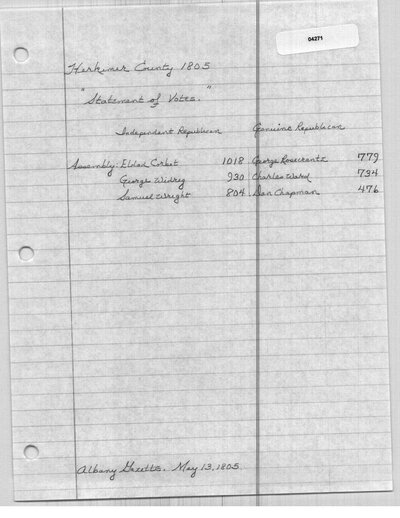 04271
Herkimer County 1805
"Statement of Votes."
Independent Republican Genuine Republican
Assembly. Eldad Corbet 1018 George Rosecrantz 779
George Widrig 930 Charles Ward 734
Samuel Wright 804 Dan Chapman 476
Albany Gazette. May 13, 1805.